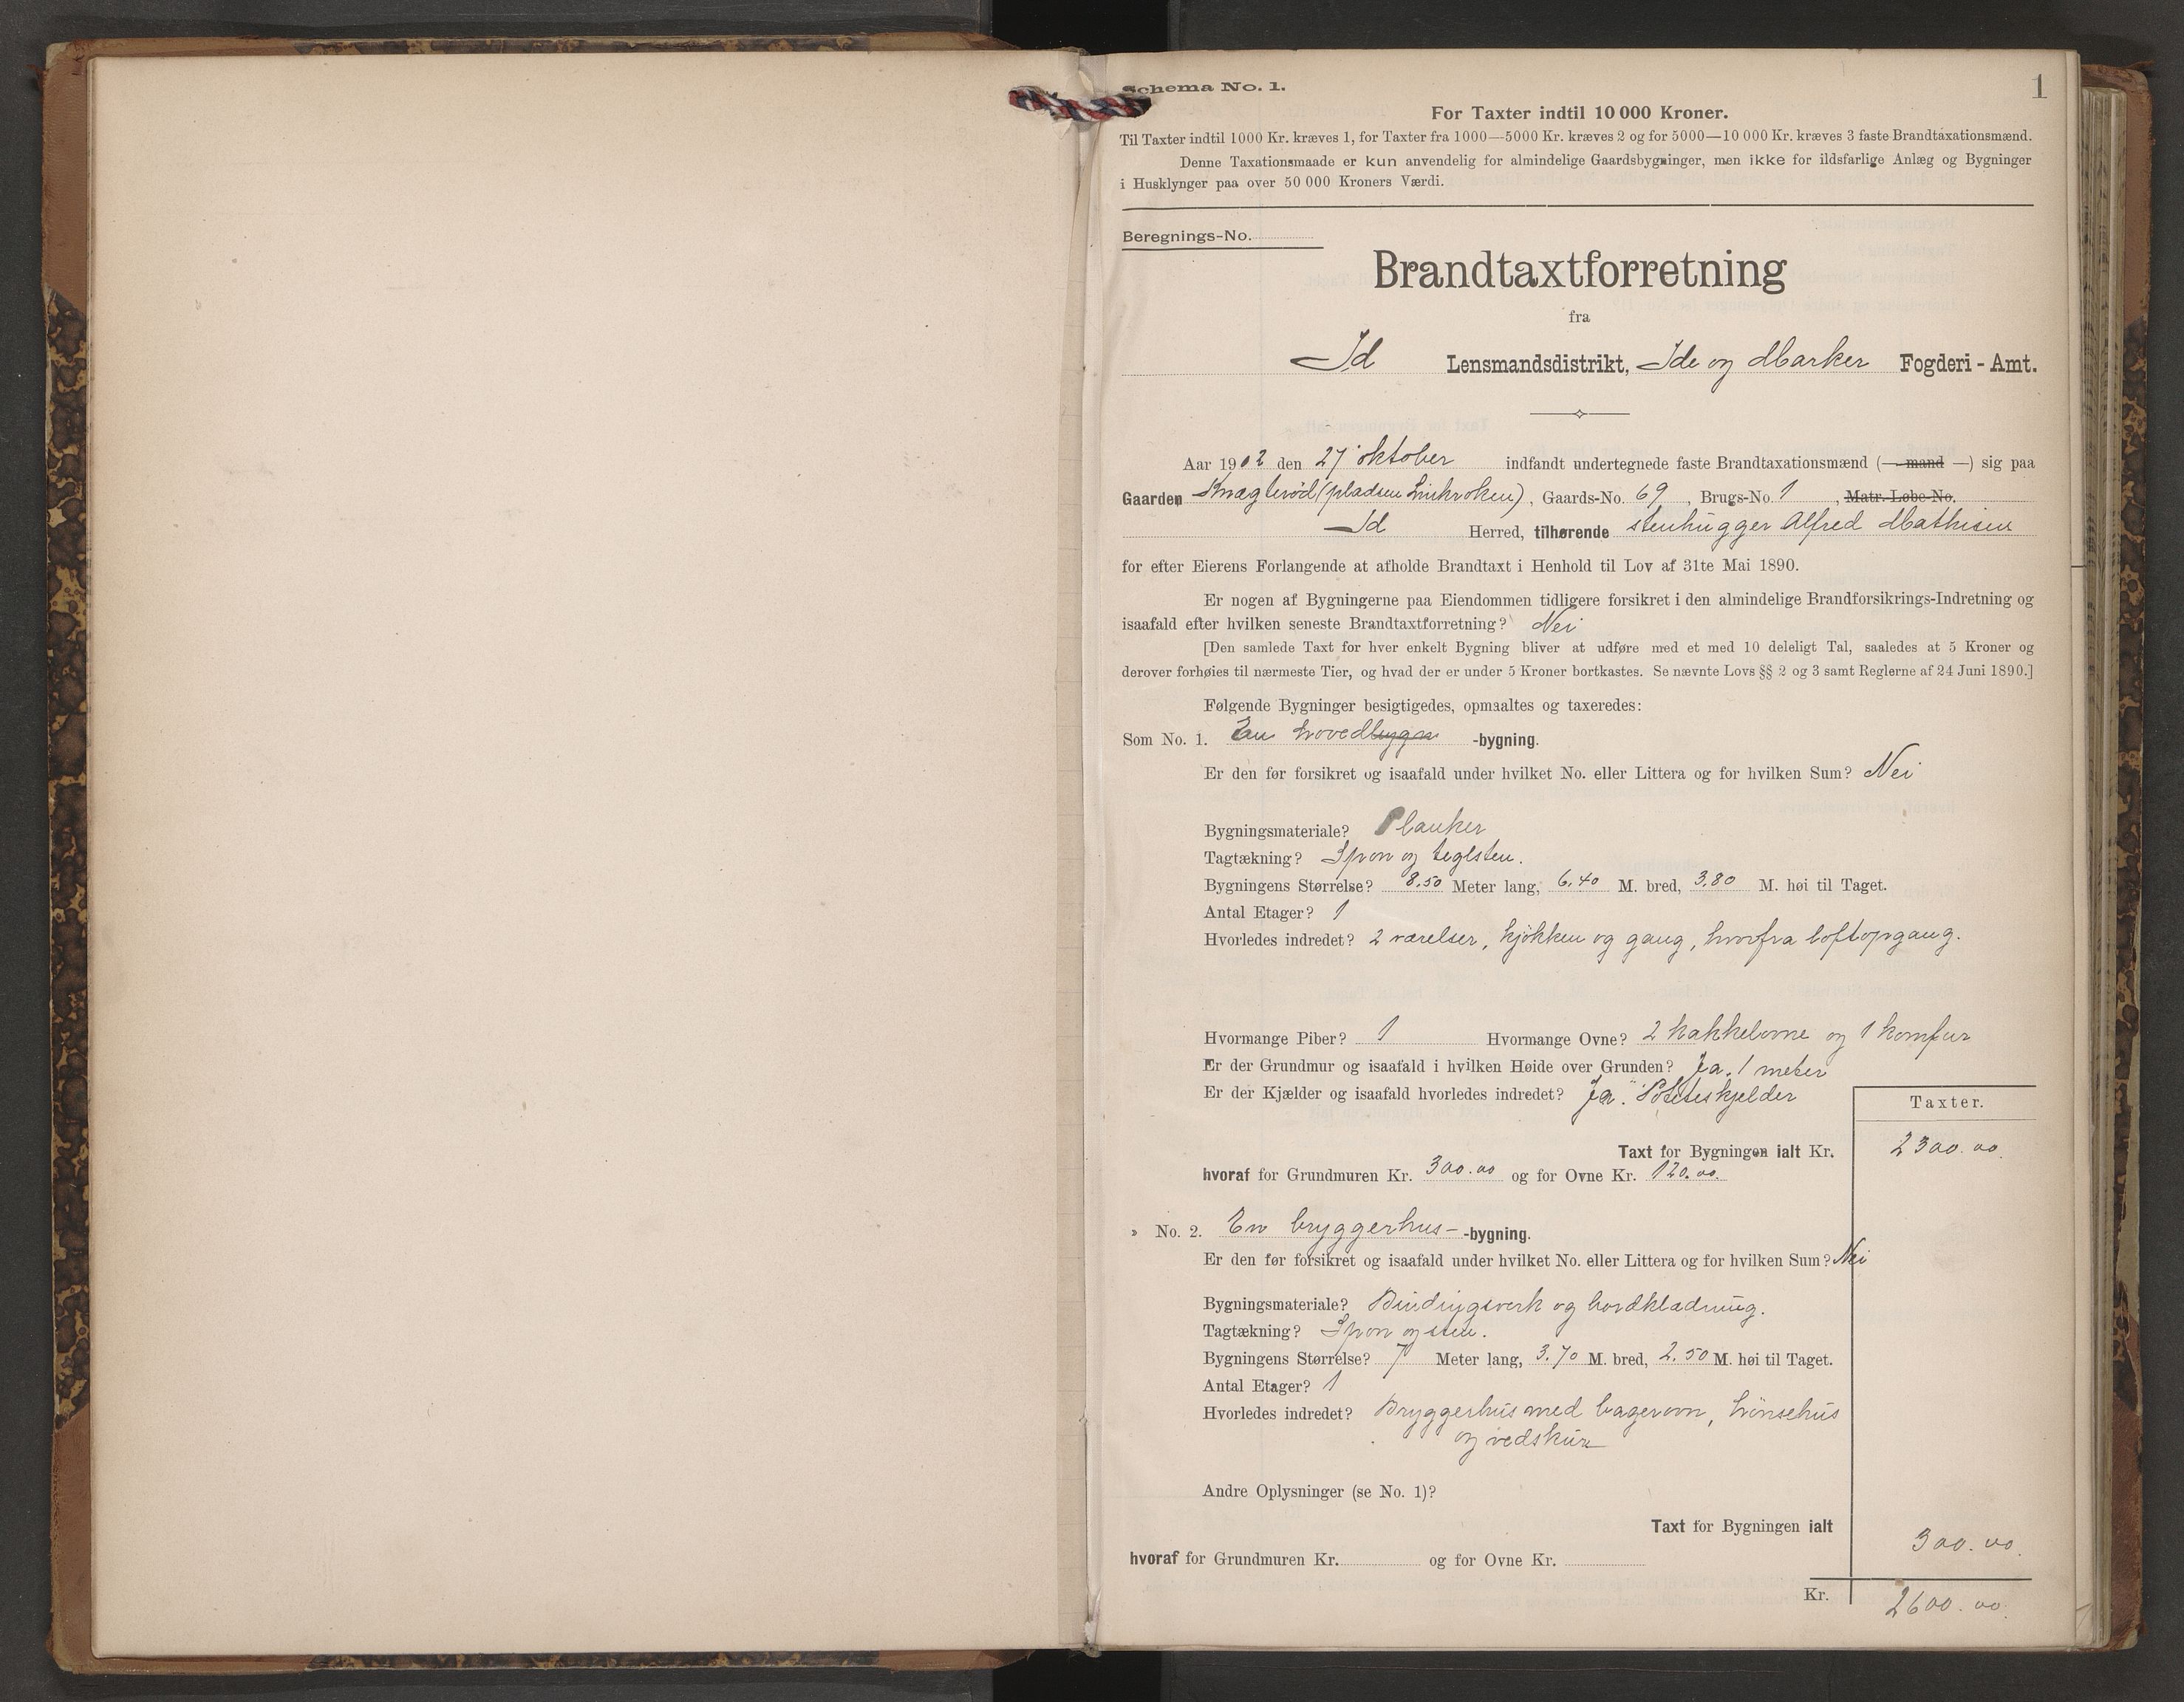 Schema No. 1.
1
For Taxter indtil 10 000 Kroner.
Til Taxter indtil 1000 Kr. kræves 1, for Taxter fra 1000—5000 Kr. kræves 2 og for 5000—10 000 Kr. kræves 3 faste Brandtaxationsmænd.
Denne Taxationsmaade er kun anvendelig for almindelige Gaardsbygninger, men ikke for ildsfarlige Anlæg og Bygninger
i Husklynger paa over 50 000 Kroners Værdi.
Beregnings-No.
Brandtaxtforretning
fra
Id Lensmandsdistrikt, Ide og Marker Fogderi - Amt.
Aar 1902 den 27 oktober indfandt undertegnede faste Brandtaxationsmænd (— mand —) sig paa
Gaarden (pladsen Linkroken), Gaards-No. 69, Brugs-No. 1, Matr.-Løbe-No.
Id Herred, tilhørende stenhugger Alfred Mathisen
for efter Eierens Forlangende at afholde Brandtaxt i Henhold til Lov af 31te Mai 1890.
Er nogen af Bygningerne paa Eiendommen tidligere forsikret i den almindelige Brandforsikrings-Indretning og
isaafald efter hvilken seneste Brandtaxtforretning? Nei
[Den samlede Taxt for hver enkelt Bygning bliver at udføre med et med 10 deleligt Tal, saaledes at 5 Kroner og
derover forhøies til nærmeste Tier, og hvad der er under 5 Kroner bortkastes. Se nævnte Lovs §§ 2 og 3 samt Reglerne af 24 Juni 1890.]
Følgende Bygninger besigtigedes, opmaaltes og taxeredes:
Som No. 1. En hovedbygn -bygning.
Er den før forsikret og isaafald under hvilket No. eller Littera og for hvilken Sum? Nei
Bygningsmateriale? Planker
Tagtækning? Spon og teglsten.
Bygningens Størrelse? 8.50 Meter lang, 6.40 M. bred, 3.80 M. høi til Taget.
Antal Etager? 1
Hvorledes indredet? 2 værelser, kjøkken og gang, hvorfra loftopgang.
Hvormange Piber? 1 Hvormange Ovne? 2 kakkelovne og 1 komfur
Er der Grundmur og isaafald i hvilken Høide over Grunden? Ja. 1 meter
Er der Kjælder og isaafald hvorledes indredet? Ja. Poteteskjelder
Taxter.
Taxt for Bygningen ialt Kr. 2300.00
hvoraf for Grundmuren Kr. 300.00 og for Ovne Kr. 120.00.
» No. 2. En bryggerhus- -bygning.
Er den før forsikret og isaafald under hvilket No. eller Littera og for hvilken Sum? Nei
Bygningsmateriale? Bindingsverk og bordklædning.
Tagtækning? Spon og sten.
Bygningens Størrelse? 7 Meter lang, 3.70 M. bred, 2.50 M. høi til Taget.
Antal Etager? 1
Hvorledes indredet? Bryggerhus med bagerovn, hønsehus
og vedskur
Andre Oplysninger (se No. 1)?
Taxt for Bygningen ialt 300.00.
hvoraf for Grundmuren Kr. og for Ovne Kr.
Kr. 2600.00.